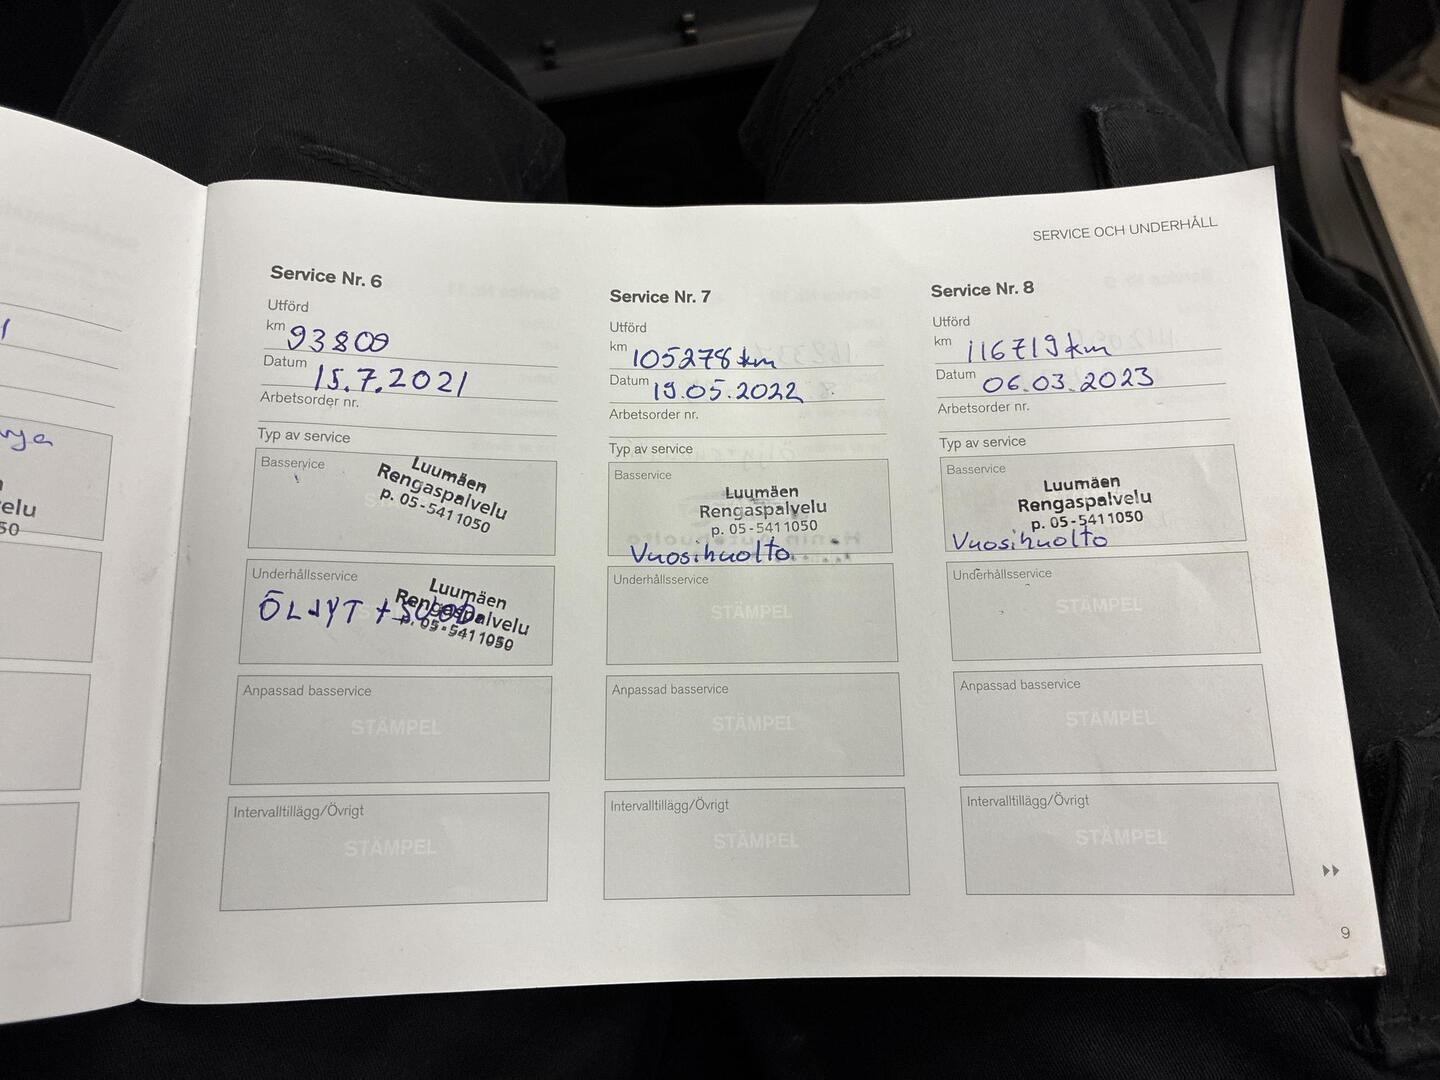 SERVICE OCH UNDERHÅLL
Service Nr. 6
Utförd
km 93800
Datum 15.7.2021
Arbetsorder nr.
Typ av service
Basservice
Luumäen
Rengaspalvelu
p. 05-5411050
Underhållsservice
ÖLJYT + SUOD.
Luumäen
Rengaspalvelu
p. 05-5411050
Anpassad basservice
STÄMPEL
Intervalltillägg/Övrigt
STÄMPEL
Service Nr. 7
Utförd
km 105278 km
Datum 19.05.2022
Arbetsorder nr.
Typ av service
Basservice
Luumäen
Rengaspalvelu
p. 05-5411050
Vuosihuolto
Underhållsservice
STÄMPEL
Anpassad basservice
STÄMPEL
Intervalltillägg/Övrigt
STÄMPEL
Service Nr. 8
Utförd
km 116719 km
Datum 06.03.2023
Arbetsorder nr.
Typ av service
Basservice
Luumäen
Rengaspalvelu
p. 05-5411050
Vuosihuolto
Underhållsservice
STÄMPEL
Anpassad basservice
STÄMPEL
Intervalltillägg/Övrigt
STÄMPEL
9